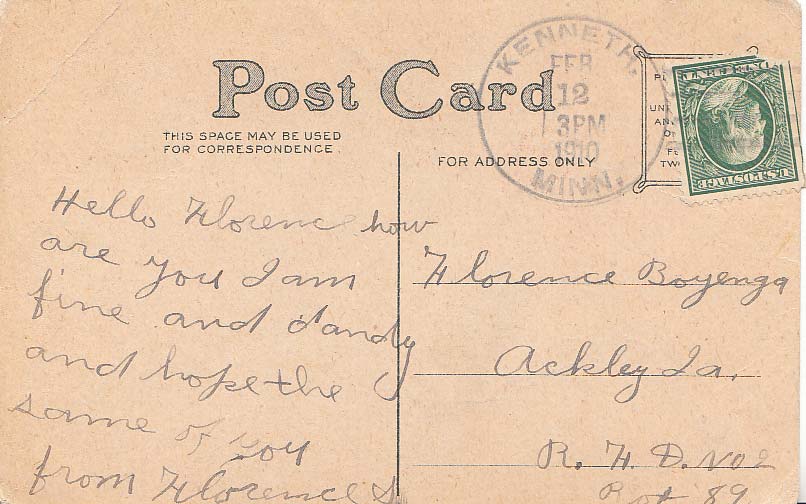 Post Card
THIS SPACE MAY BE USED
FOR CORRESPONDENCE.
FOR ADDRESS ONLY
KENNETH,
FEB
12
3PM
1910
MINN.
U.S. POSTAGE
Hello Florence how
are you I am
fine and dandy
and hope the
same of you
from Florence S
Florence Boyenga
Ackley Ia.
R. F. D. No 2
89